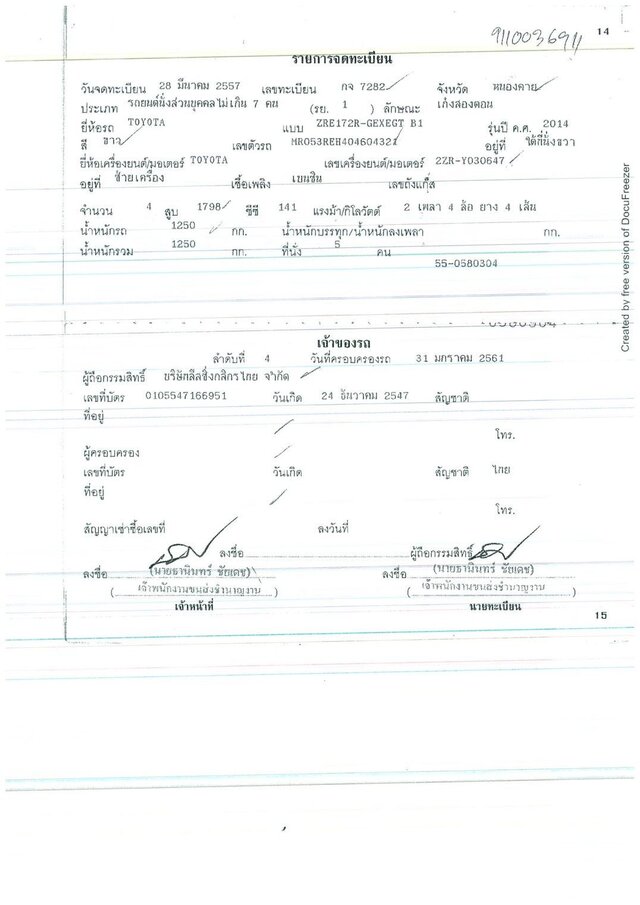 9110036911
14
รายการจดทะเบียน
วันจดทะเบียน 28 มีนาคม 2557 เลขทะเบียน กจ 7282 จังหวัด หนองคาย
ประเภท รถยนต์นั่งส่วนบุคคลไม่เกิน 7 คน (รย. 1 ) ลักษณะ เก๋งสองตอน
ยี่ห้อรถ TOYOTA แบบ ZRE172R-GEXEGT B1 รุ่นปี ค.ศ. 2014
สี ขาว เลขตัวรถ MR053REH404604321 อยู่ที่ ใต้ที่นั่งขวา
ยี่ห้อเครื่องยนต์/มอเตอร์ TOYOTA เลขเครื่องยนต์/มอเตอร์ 2ZR-Y030647
อยู่ที่ ซ้ายเครื่อง เชื้อเพลิง เบนซิน เลขถังแก๊ส
จำนวน 4 สูบ 1798 ซีซี 141 แรงม้า/กิโลวัตต์ 2 เพลา 4 ล้อ ยาง 4 เส้น
น้ำหนักรถ 1250 กก. น้ำหนักบรรทุก/น้ำหนักลงเพลา กก.
น้ำหนักรวม 1250 กก. ที่นั่ง 5 คน
55-0580304
เจ้าของรถ
ลำดับที่ 4 วันที่ครอบครองรถ 31 มกราคม 2561
ผู้ถือกรรมสิทธิ์ บริษัทลีสซิ่งกสิกรไทย จำกัด
เลขที่บัตร 0105547166951 วันเกิด 24 ธันวาคม 2547 สัญชาติ
ที่อยู่
โทร.
ผู้ครอบครอง
เลขที่บัตร วันเกิด สัญชาติ ไทย
ที่อยู่
โทร.
สัญญาเช่าซื้อเลขที่ ลงวันที่
ลงชื่อ ผู้ถือกรรมสิทธิ์
ลงชื่อ (นายธานินทร์ ชัยเดช) ลงชื่อ (นายธานินทร์ ชัยเดช)
(เจ้าพนักงานขนส่งชำนาญงาน) (เจ้าพนักงานขนส่งชำนาญงาน)
เจ้าหน้าที่ นายทะเบียน
15
Created by free version of DocuFreezer